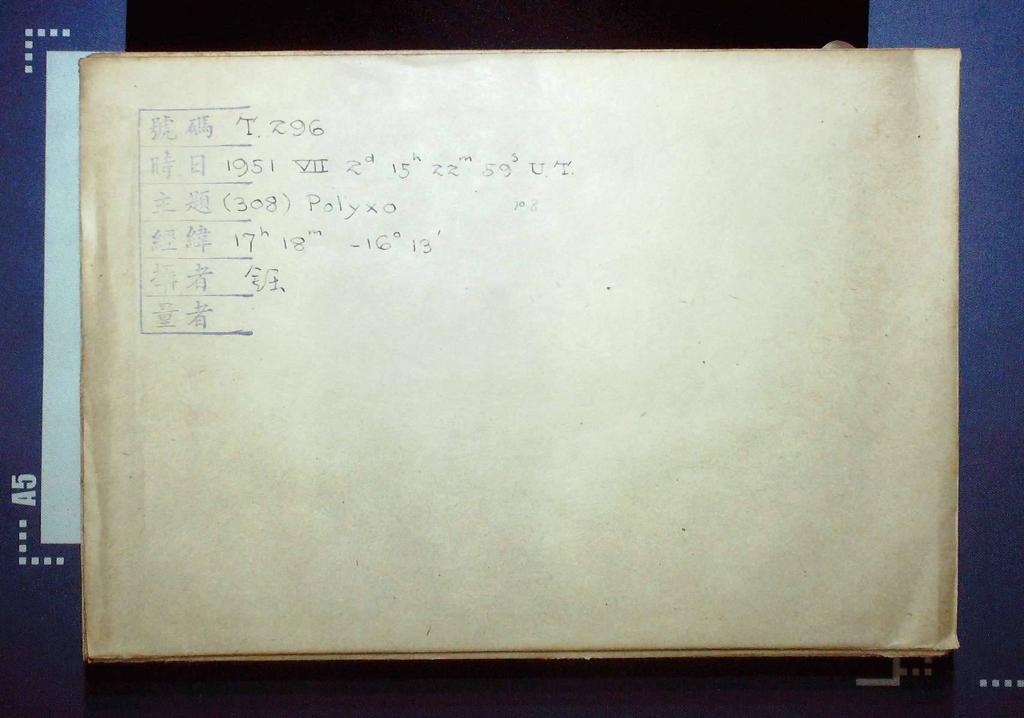 號碼 T. 296
時日 1951 VII 2d 15h 22m 59s U.T.
主題 (308) Polyxo 10.8
經緯 17h 18m -16° 13'
攝者 鈺
量者
A5